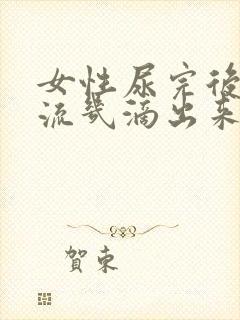 女性尿完後
流幾滴出來
賀東